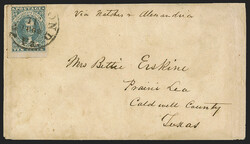 Via Natchez & Alexandria
POSTAGE
Mrs Bettie Erskine
Prairie Lea
Caldwell County
Texas